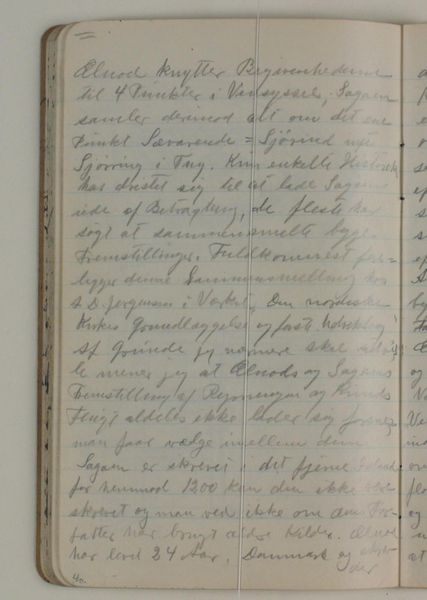 Ælnod knytter Begivenhederne
til 4 Punkter i Vensyssel, Sagaen
samler derimod alt om det ene
Punkt Sævarende = Sjörind nu
Sjörring i Thy. Kun enkelte Historik
har dristet sig til at lade Sagaen
ude af Betragtning, de fleste har
søgt at sammensmelte begge
Fremstillinger. Fuldkomnest fore-
ligger denne Sammensmeltning hos
A. D. Jørgensen i Værket, Den nordiske
Kirkes Grundlæggelse og første Udvikling
Af Grunde jeg nærmere skal udvik
le mener jeg at Ælnods og Sagaens
Fremstilling af Rejsningen og Kniuds
Flugt aldeles ikke lader sig forene,
man faar vælge imellem dem.
Sagaen er skrevet i det fjerne Island
før henimod 1200 kan den ikke være
skrevet og man ved ikke om dens For-
fatter har brugt ældre Kilder. Ælnod
har levet 24 Aar i Danmark og